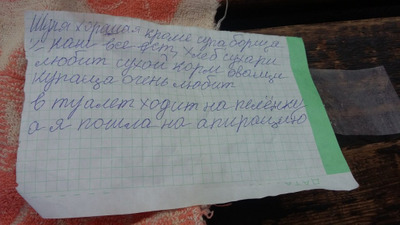 Шуря хорошая кроме супа борща
у нас все ест, хлеб сухари
любит сухой корм овощи
купаца очень любит
в туалет ходит на пелёнку
а я пошла на апирацию
ДАТА